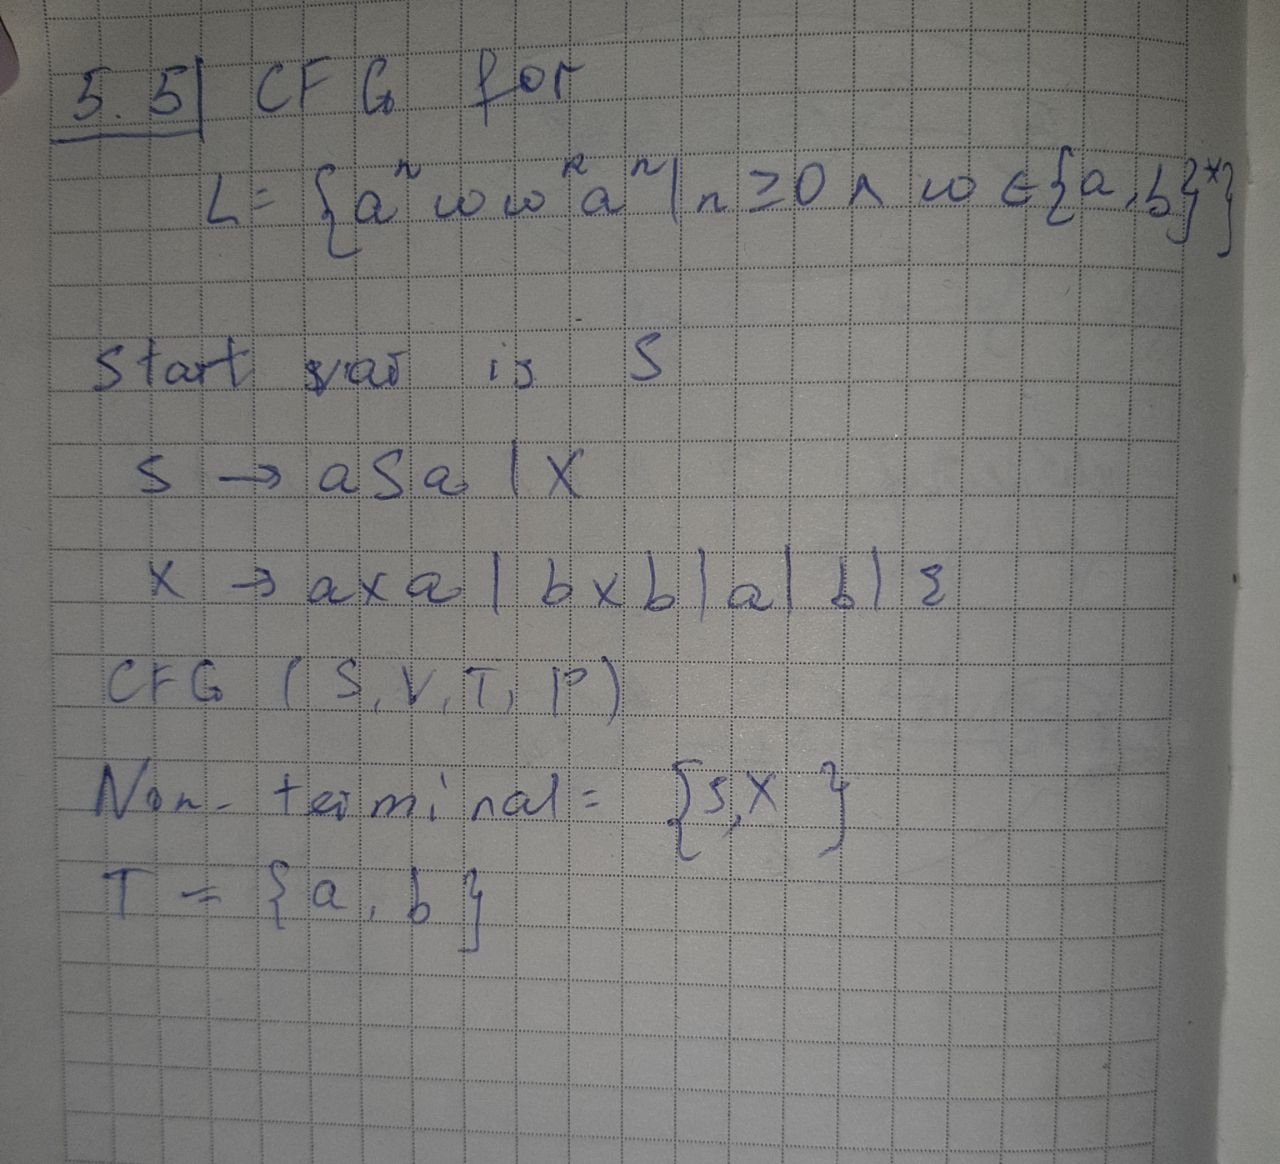 5.5| CFG for
L = {aⁿ w wᴿ aⁿ | n ≥ 0 ∧ w ∈ {a,b}*}
Start var is S
S → aSa | X
X → axa | bxb | a | b | ε
CFG (S, V, T, P)
Non-terminal = {S,X}
T = {a, b}